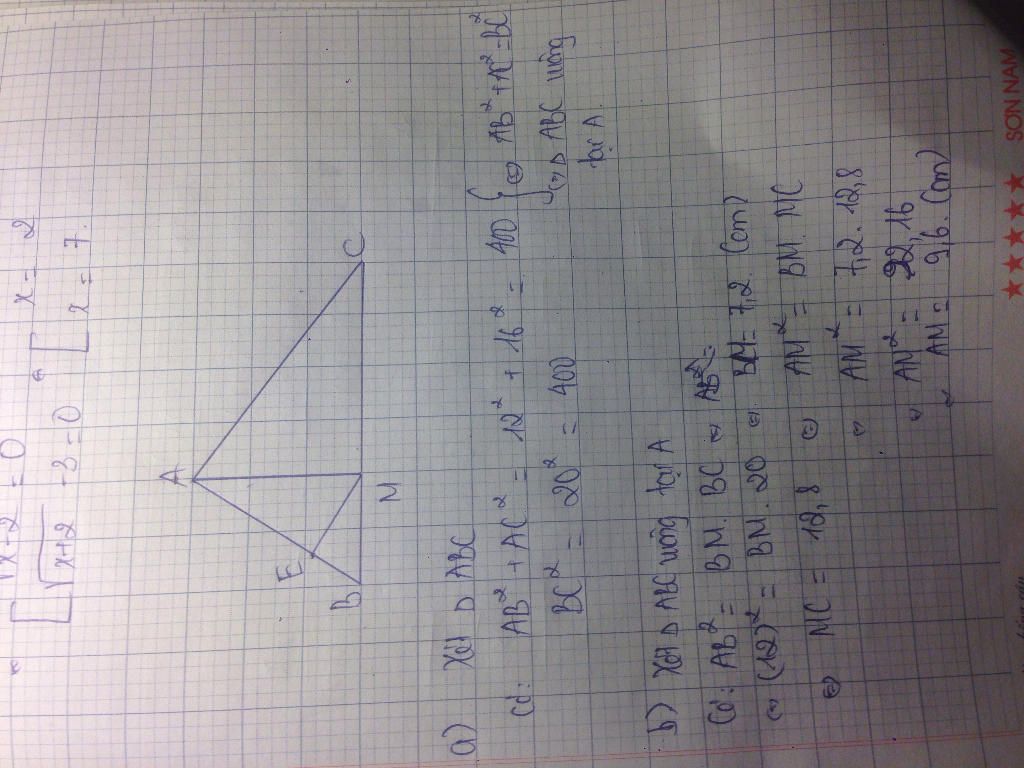 √x-2 = 0 ⇔ [ x = 2
√x+2 - 3 = 0 [ x = 7.
A
E
B
M
C
a) Xét Δ ABC
Có: AB² + AC² = 12² + 16² = 400 } ⇔ AB² + AC² = BC²
BC² = 20² = 400 ⇔ Δ ABC vuông
tại A.
b) Xét Δ ABC vuông tại A
Có: AB² = BM. BC ⇔ AB²
⇔ (12)² = BM. 20 ⇔ BM = 7,2. (cm)
⇔ MC = 12,8 ⇔ AM² = BM. MC
⇔ AM² = 7,2. 12,8
⇔ AM² = 92,16
⇔ AM = 9,6. (cm)
★★★★★ SƠN NAM